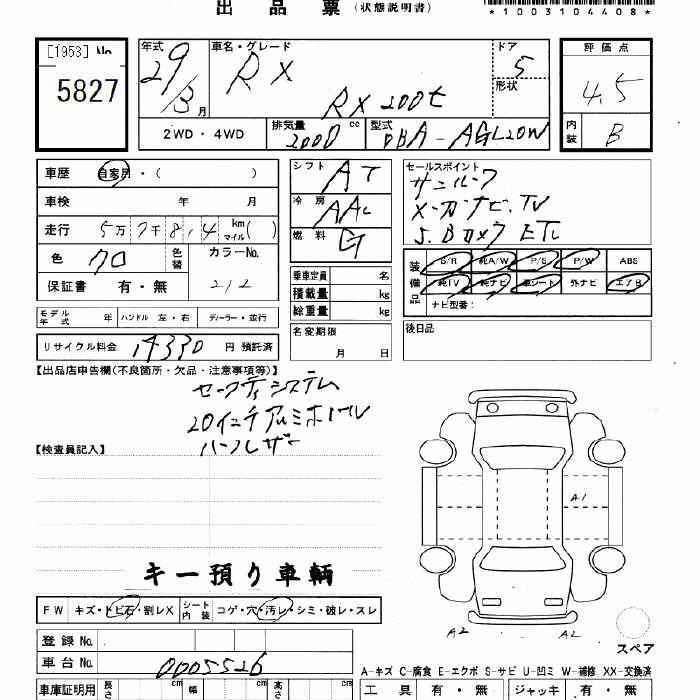 出品票（状態説明書）
*1003104408*
[1953] No.
5827
年式 車名・グレード ドア 評価点
29/3月 RX 5 4.5
形状
RX 200t
2WD・4WD 排気量 cc 型式 内装
2000 DBA-AGL20W B
車歴 自家用・( ) シフト AT セールスポイント
車検 年 月 冷房 AAC サンルーフ
走行 5万7千8,4 km マイル( ) 燃料 G メーカーナビ.TV
S.Bカメラ ETC
色 クロ 色替 カラーNo.
保証書 有・無 212
乗車定員 名
積載量 kg
総重量 kg
装備品 S/R 純A/W P/S P/W ABS
純TV 純ナビ 革シート 外ナビ エアB
ナビ型番：
モデル年式 年 ハンドル 左・右 ディーラー・並行 名変期限 月 日 後日品
リサイクル料金 14330 円 預託済
【出品店申告欄(不良箇所・欠品・注意事項等)】
セーフティシステム
20インチアルミホイール
ハーフレザー
【検査員記入】
A1
キー預り車輌
FW キズ・トビ石・割レX シート内装 コゲ・穴・汚レ・シミ・破レ・スレ
A2 A2
スペア
登録No.
車台No. 0005526
A-キズ C-腐食 E-エクボ S-サビ U-凹ミ W-補修 XX-交換済
車庫証明用 長さ cm 幅 cm 高さ cm 工具 有・無 ジャッキ 有・無